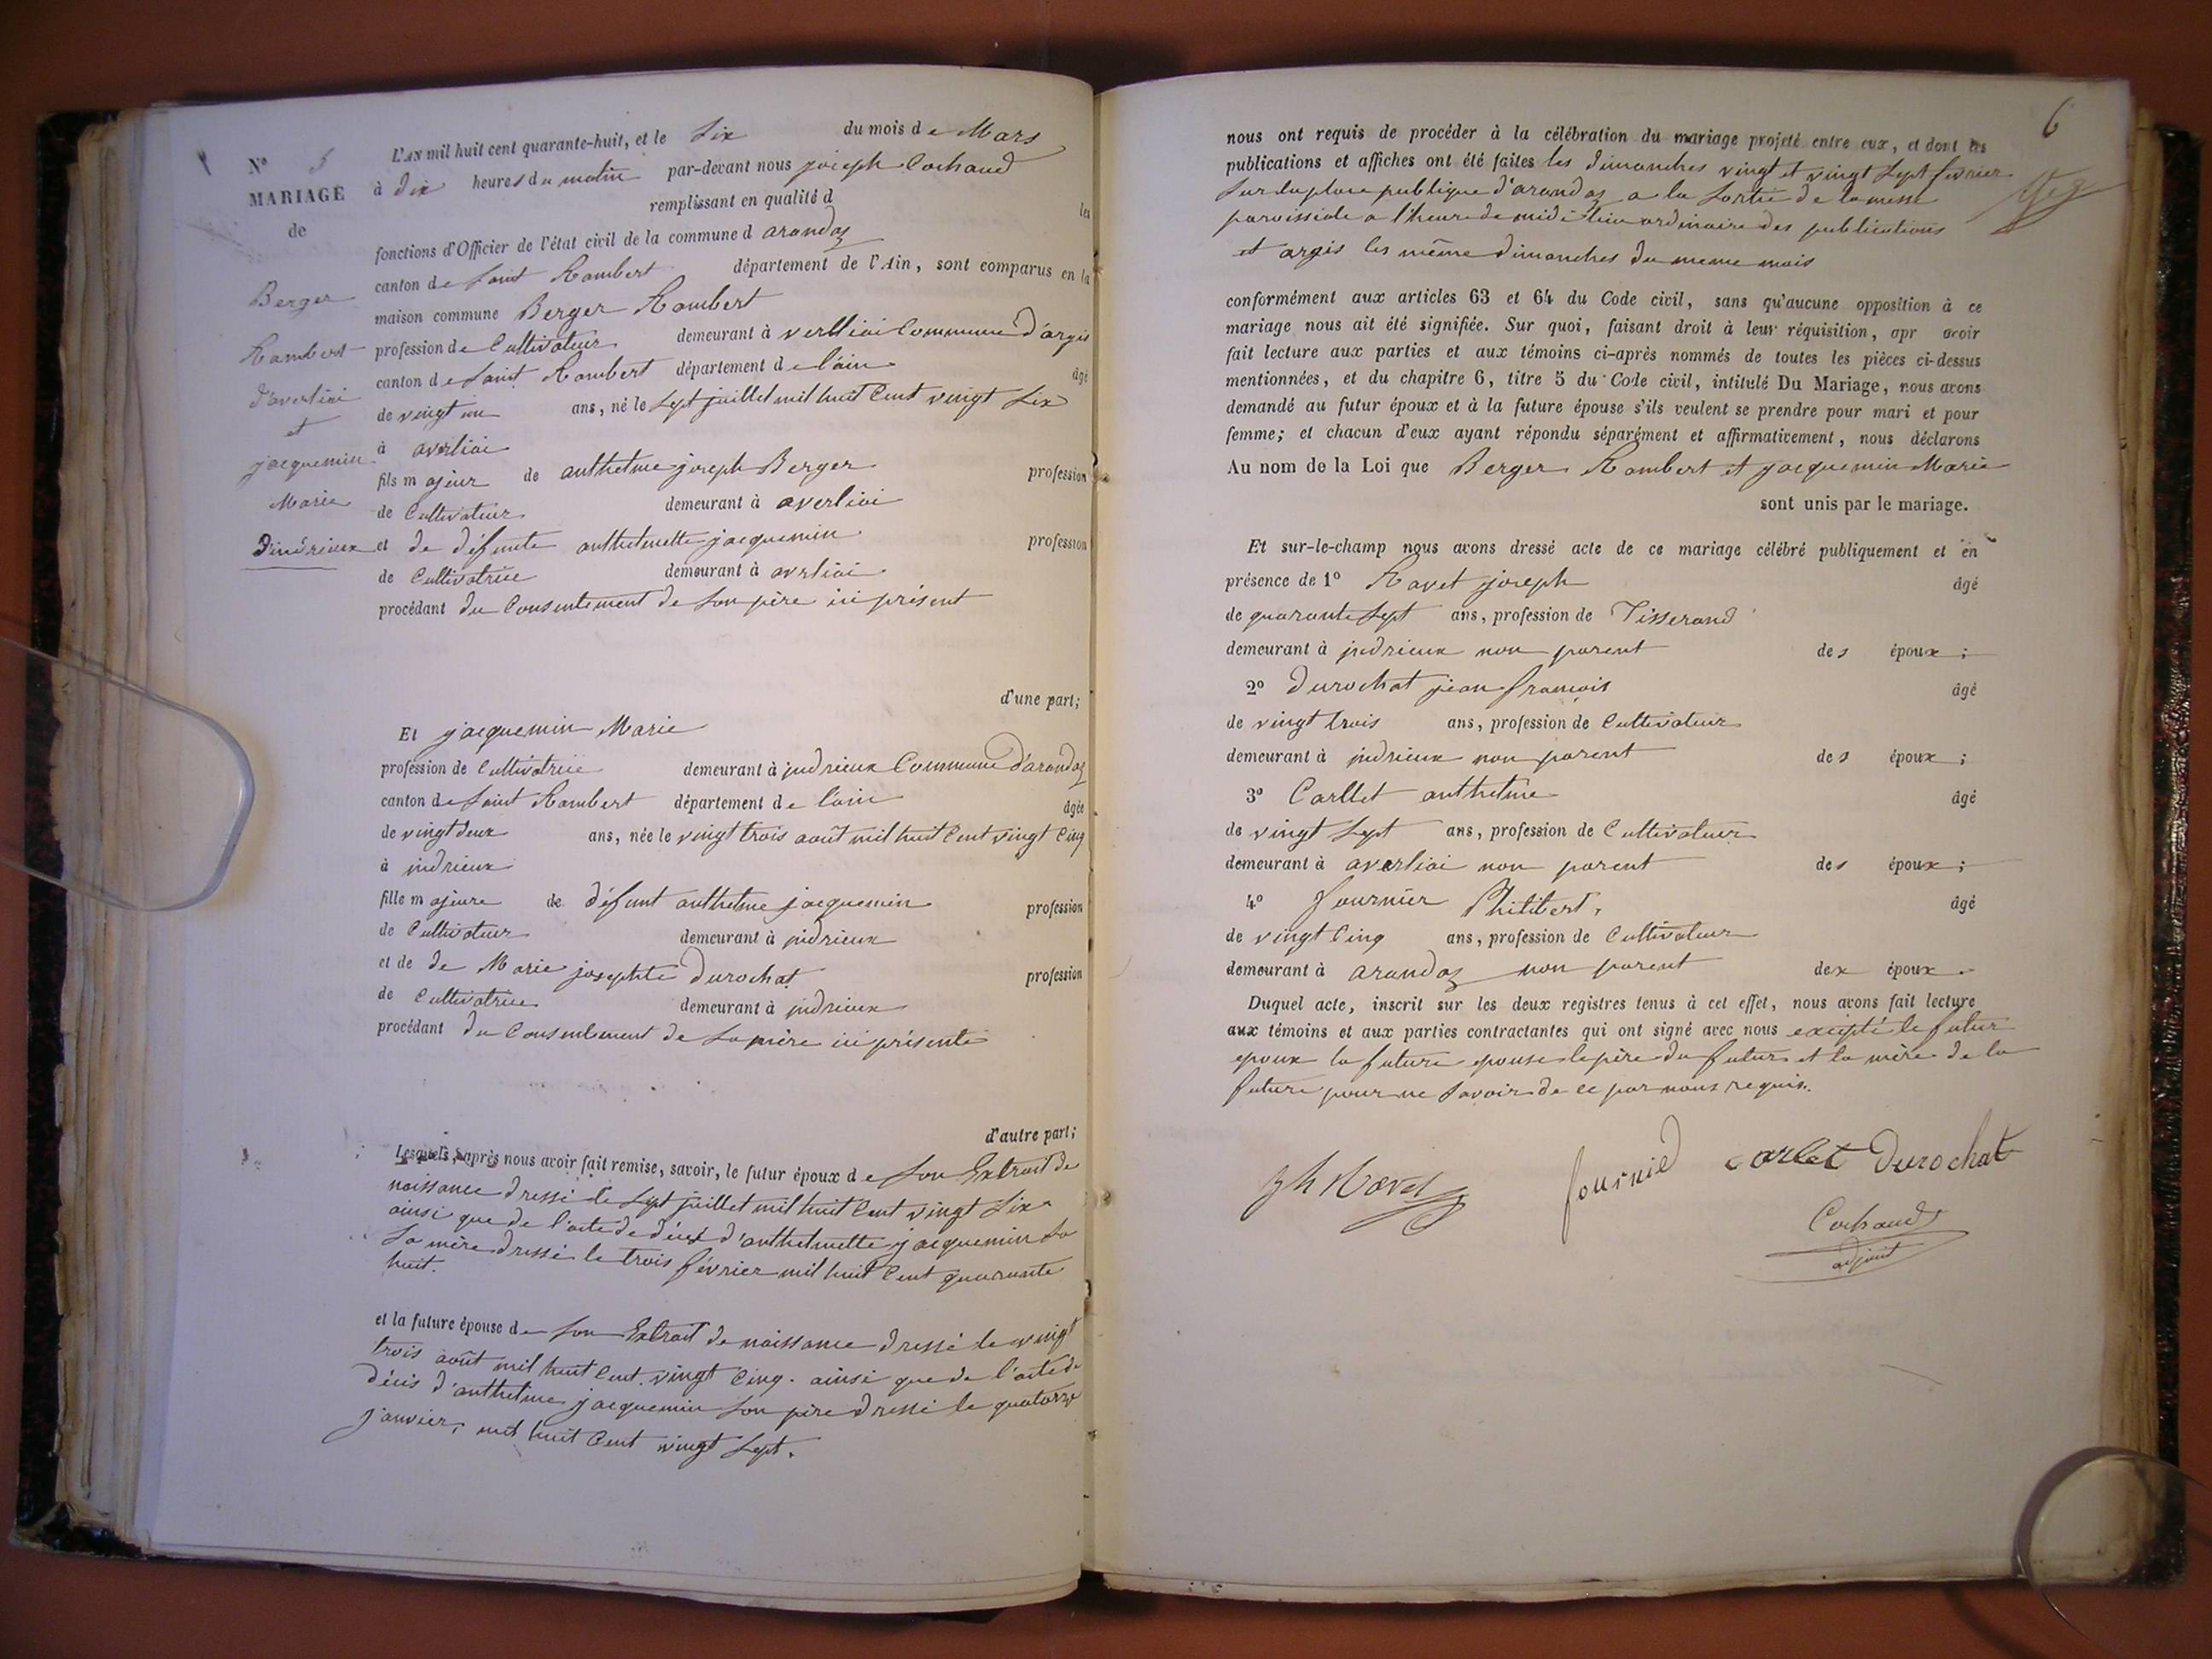 N° 5
MARIAGE
de
Berger
Rambert
d'averliai
et
jacquemin
Marie
D'indrieux
L'AN mil huit cent quarante-huit, et le six du mois de Mars
à dix heures du matin par-devant nous joseph Cochaud
remplissant en qualité d les
fonctions d'Officier de l'état civil de la commune d arandaz
canton de saint Rambert département de l'Ain, sont comparus en la
maison commune Berger Rambert
profession de Cultivateur demeurant à verlliai Commune d'argis
canton de saint Rambert département de l'ain âgé
de vingt un ans, né le sept juillet mil huit Cent vingt six
à averliai
fils majeur de anthelme joseph Berger profession
de Cultivateur demeurant à averliai
et de défunte anthelmette jacquemin profession
de Cultivatrice demeurant à averliai
procédant du Consentement de son père ici présent
d'une part;
Et jacquemin Marie
profession de Cultivatrice demeurant à indrieux Commune d'arandaz
canton de saint Rambert département de l'ain âgée
de vingt deux ans, née le vingt trois août mil huit Cent vingt Cinq
à indrieux
fille majeure de défunt anthelme jacquemin profession
de Cultivateur demeurant à indrieux
et de de Marie josephte Durochat profession
de Cultivatrice demeurant à indrieux
procédant du Consentement de sa mère ici présente
d'autre part;
Lesquels, après nous avoir fait remise, savoir, le futur époux de son Extrait de
naissance dressé le sept juillet mil huit Cent vingt six
ainsi que de l'acte de décès d'anthelmette jacquemin sa
sa mère dressé le trois février mil huit Cent quarante
huit.
et la future épouse de son Extrait de naissance dressé le vingt
trois août mil huit Cent vingt Cinq. ainsi que de l'acte de
décès d'anthelme jacquemin son père dressé le quatorze
janvier, mil huit Cent vingt sept.
6
nous ont requis de procéder à la célébration du mariage projeté entre eux, et dont les
publications et affiches ont été faites les dimanches vingt et vingt sept février
sur la place publique d'arandaz a la sortie de la messe
paroissiale a l'heure de midi lieu ordinaire des publications
et argis les même dimanches du meme mois
conformément aux articles 63 et 64 du Code civil, sans qu'aucune opposition à ce
mariage nous ait été signifiée. Sur quoi, faisant droit à leur réquisition, apr avoir
fait lecture aux parties et aux témoins ci-après nommés de toutes les pièces ci-dessus
mentionnées, et du chapitre 6, titre 5 du Code civil, intitulé Du Mariage, nous avons
demandé au futur époux et à la future épouse s'ils veulent se prendre pour mari et pour
femme; et chacun d'eux ayant répondu séparément et affirmativement, nous déclarons
Au nom de la Loi que Berger Rambert et jacquemin Marie
sont unis par le mariage.
Et sur-le-champ nous avons dressé acte de ce mariage célébré publiquement et en
présence de 1° Ravet joseph âgé
de quarante sept ans, profession de Tisserand
demeurant à indrieux non parent des époux;
2° Durochat jean françois âgé
de vingt trois ans, profession de Cultivateur
demeurant à indrieux non parent des époux;
3° Carllet anthelme âgé
de vingt sept ans, profession de Cultivateur
demeurant à averliai non parent des époux;
4° fournier Philibert, âgé
de vingt Cinq ans, profession de Cultivateur
demeurant à arandaz non parent des époux.
Duquel acte, inscrit sur les deux registres tenus à cet effet, nous avons fait lecture
aux témoins et aux parties contractantes qui ont signé avec nous excepté le futur
epoux la future epouse le père du futur et la mère de la
future pour ne savoir de ce par nous requis.
fournied carlet Durochat
Cochaud
adjoint